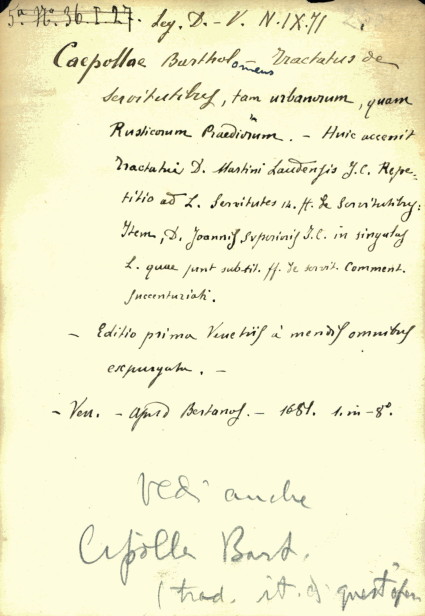 5ª Nº 36 I 27. Leg. D. - V. N. IX. 71
Caepollae Bartholomeus Tractatus de
Servitutibus, tam urbanorum, quam
Rusticorum Praediorum. - Huic accenit
Tractatui D. Martini Laudensis J. C. Repe-
titio ad L. Servitutes 14. ff. de Servitutibus:
Item, D. Joannis Superioris J. C. in singulas
L. quae sunt substit. ff. de servit. Comment.
succenturiati.
- Editio prima Venetiis à mendis omnibus
expurgata. -
- Ven. - Apud Bertanos. - 1681. 1. in - 8º.
Vedi anche
Cipolla Bart.
(trad. it. di quest'opera